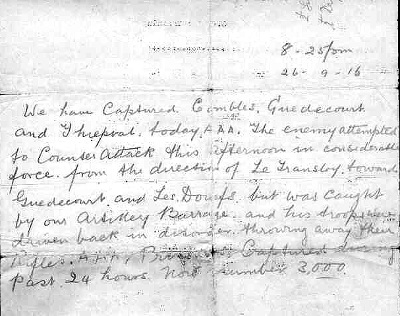 8-25pm
26-9-16
We have Captured Combles, Guedecourt
and Thiepval. today, AAA. The enemy attempted
to Counter Attack this afternoon in considerable
force. from the direction of Le Transloy. toward
Guedecourt and Les Boeufs, but was Caught
by our Artillery Barrage and his troops were
driven back in disorder. throwing away their
Rifles. AAA. Prisoners Captured during
past 24 hours. Now number 3,000.